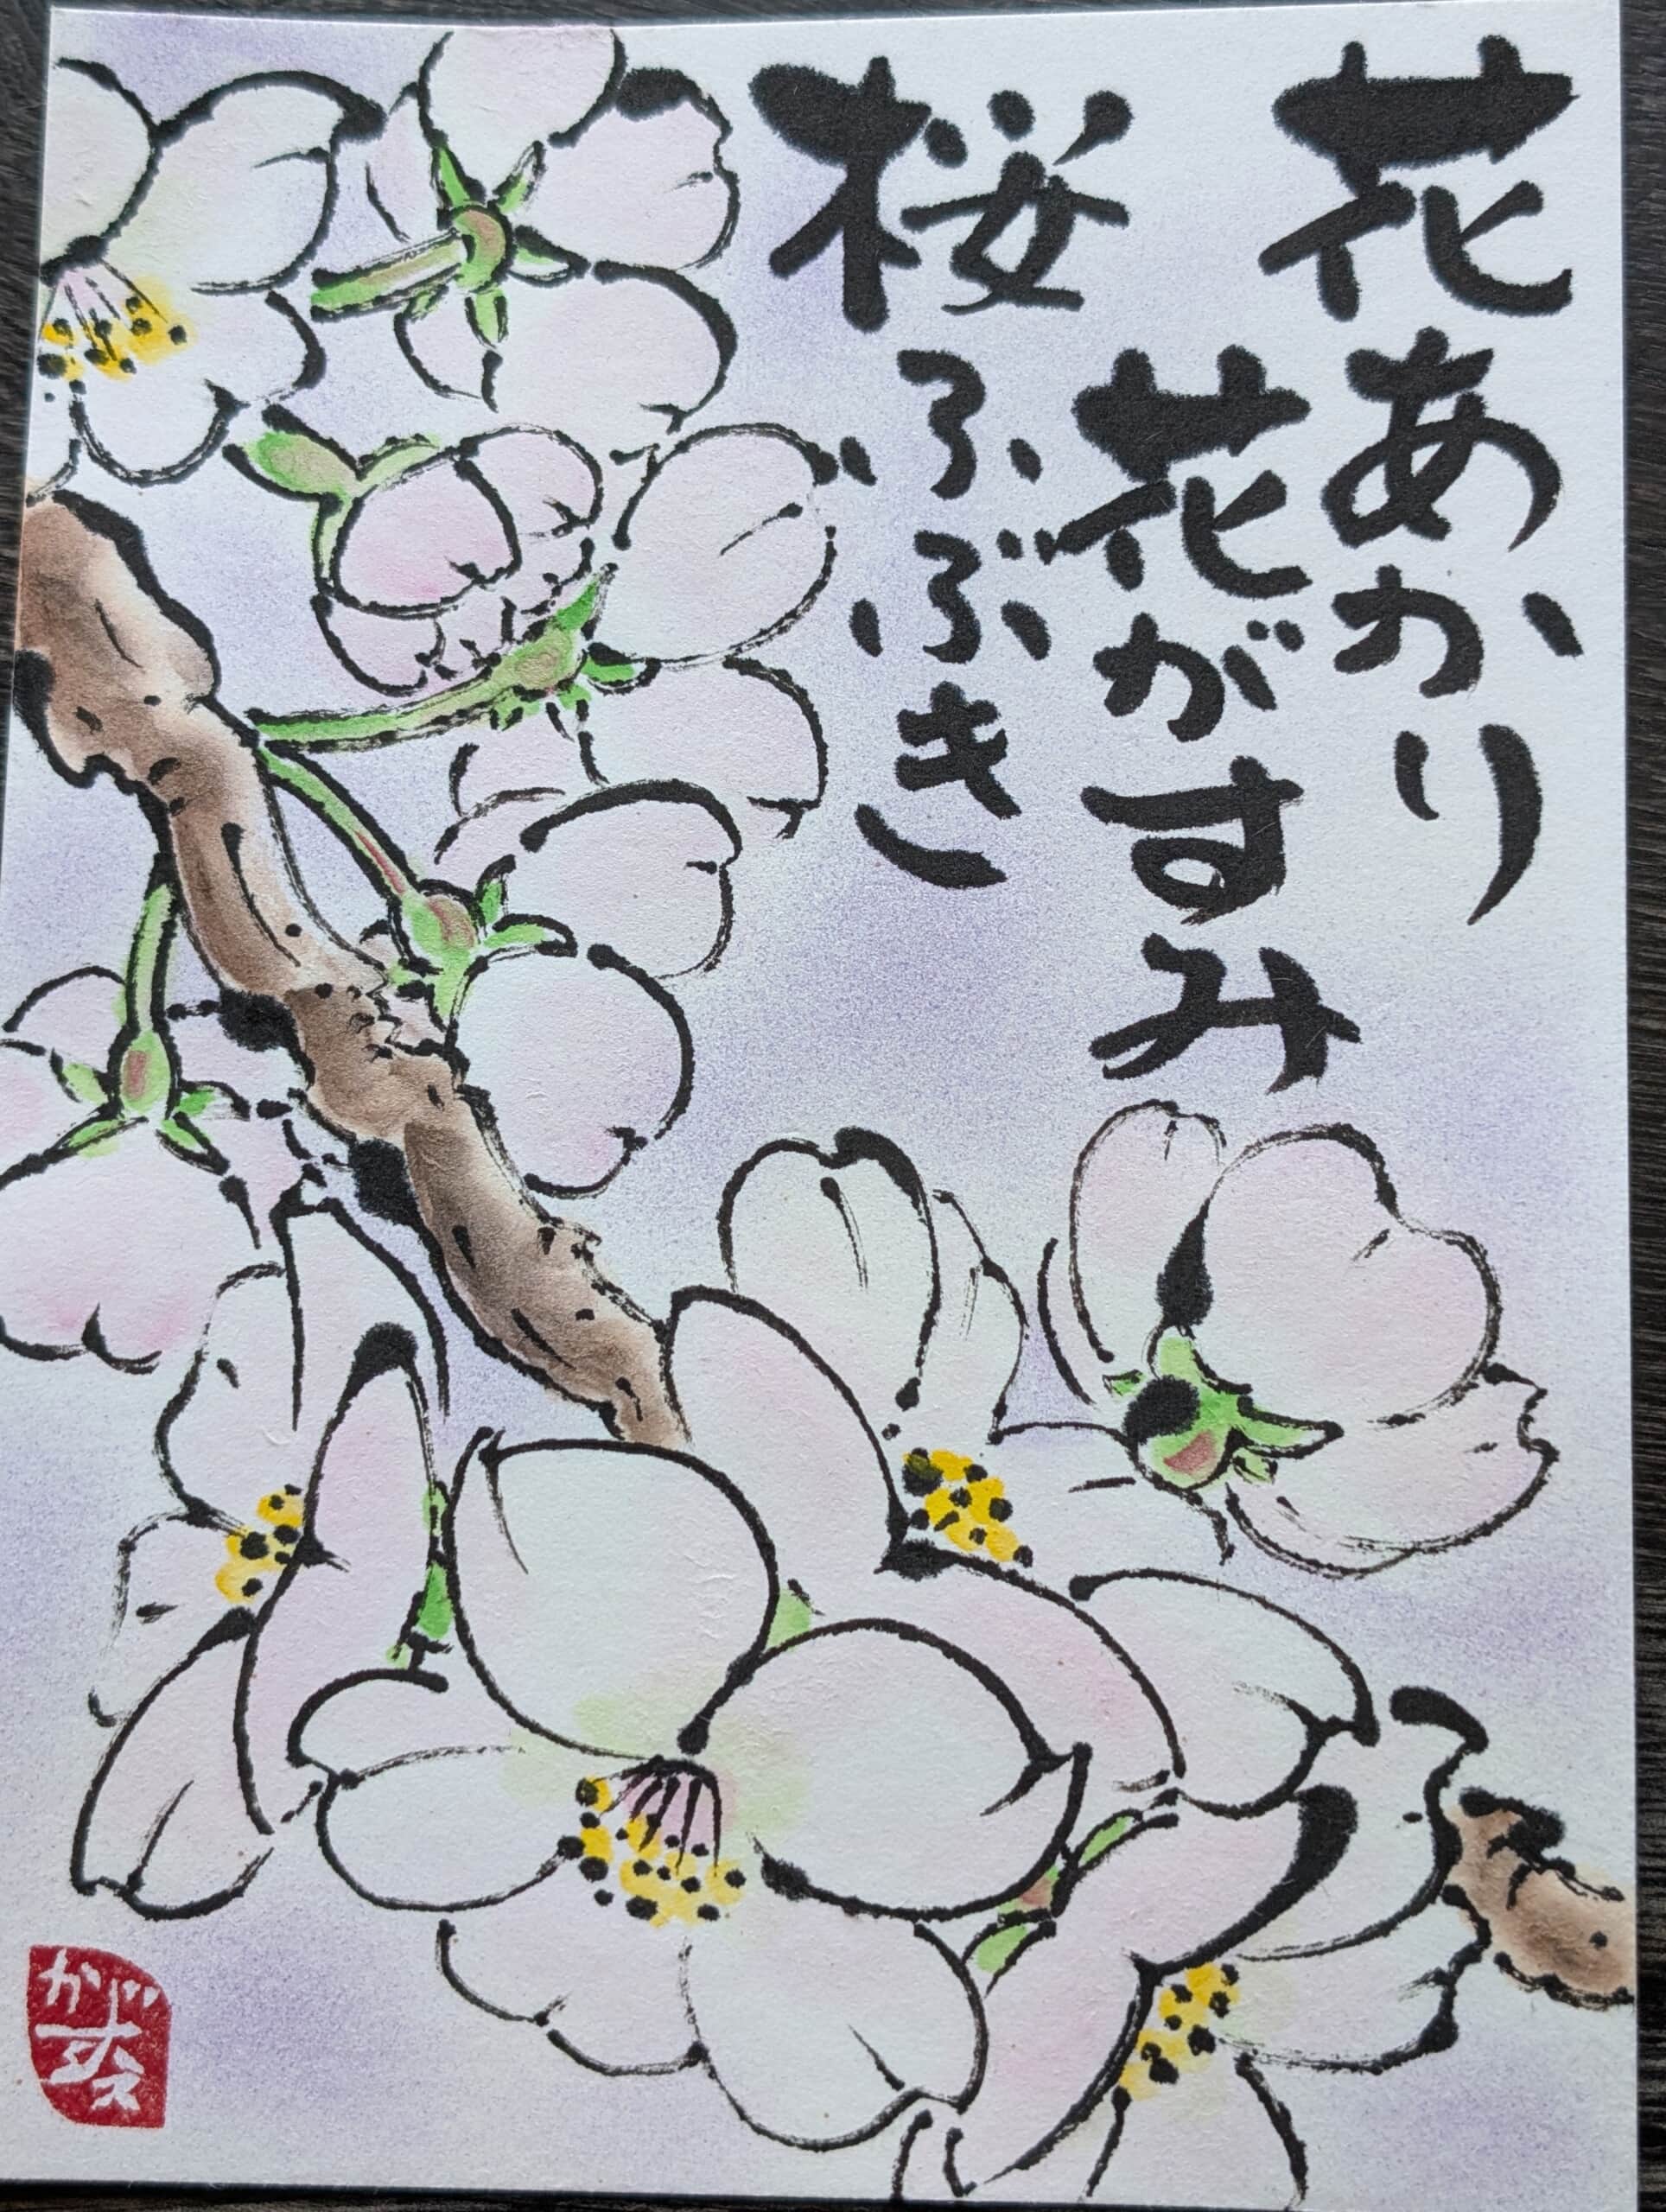 花あかり
花がすみ
桜ふぶき